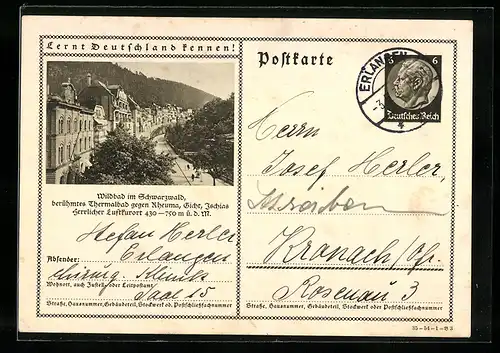 Lernt Deutschland kennen!
Wildbad im Schwarzwald,
berühmtes Thermalbad gegen Rheuma, Gicht, Ischias
Herrlicher Luftkurort 430–750 m ü. d. M.
Stefan Herler
Absender: Erlangen
chirurg. Klinik
Wohnort, auch Zustell- oder Leitpostamt
Saal 15
Straße, Hausnummer, Gebäudeteil, Stockwerk od. Postschließfachnummer
Postkarte
ERLANGEN
4
6
Deutsches Reich
Herrn
Josef Herler,
Kronach/Ofr.
Rosenau 3
Straße, Hausnummer, Gebäudeteil, Stockwerk oder Postschließfachnummer
35–54–1–B3